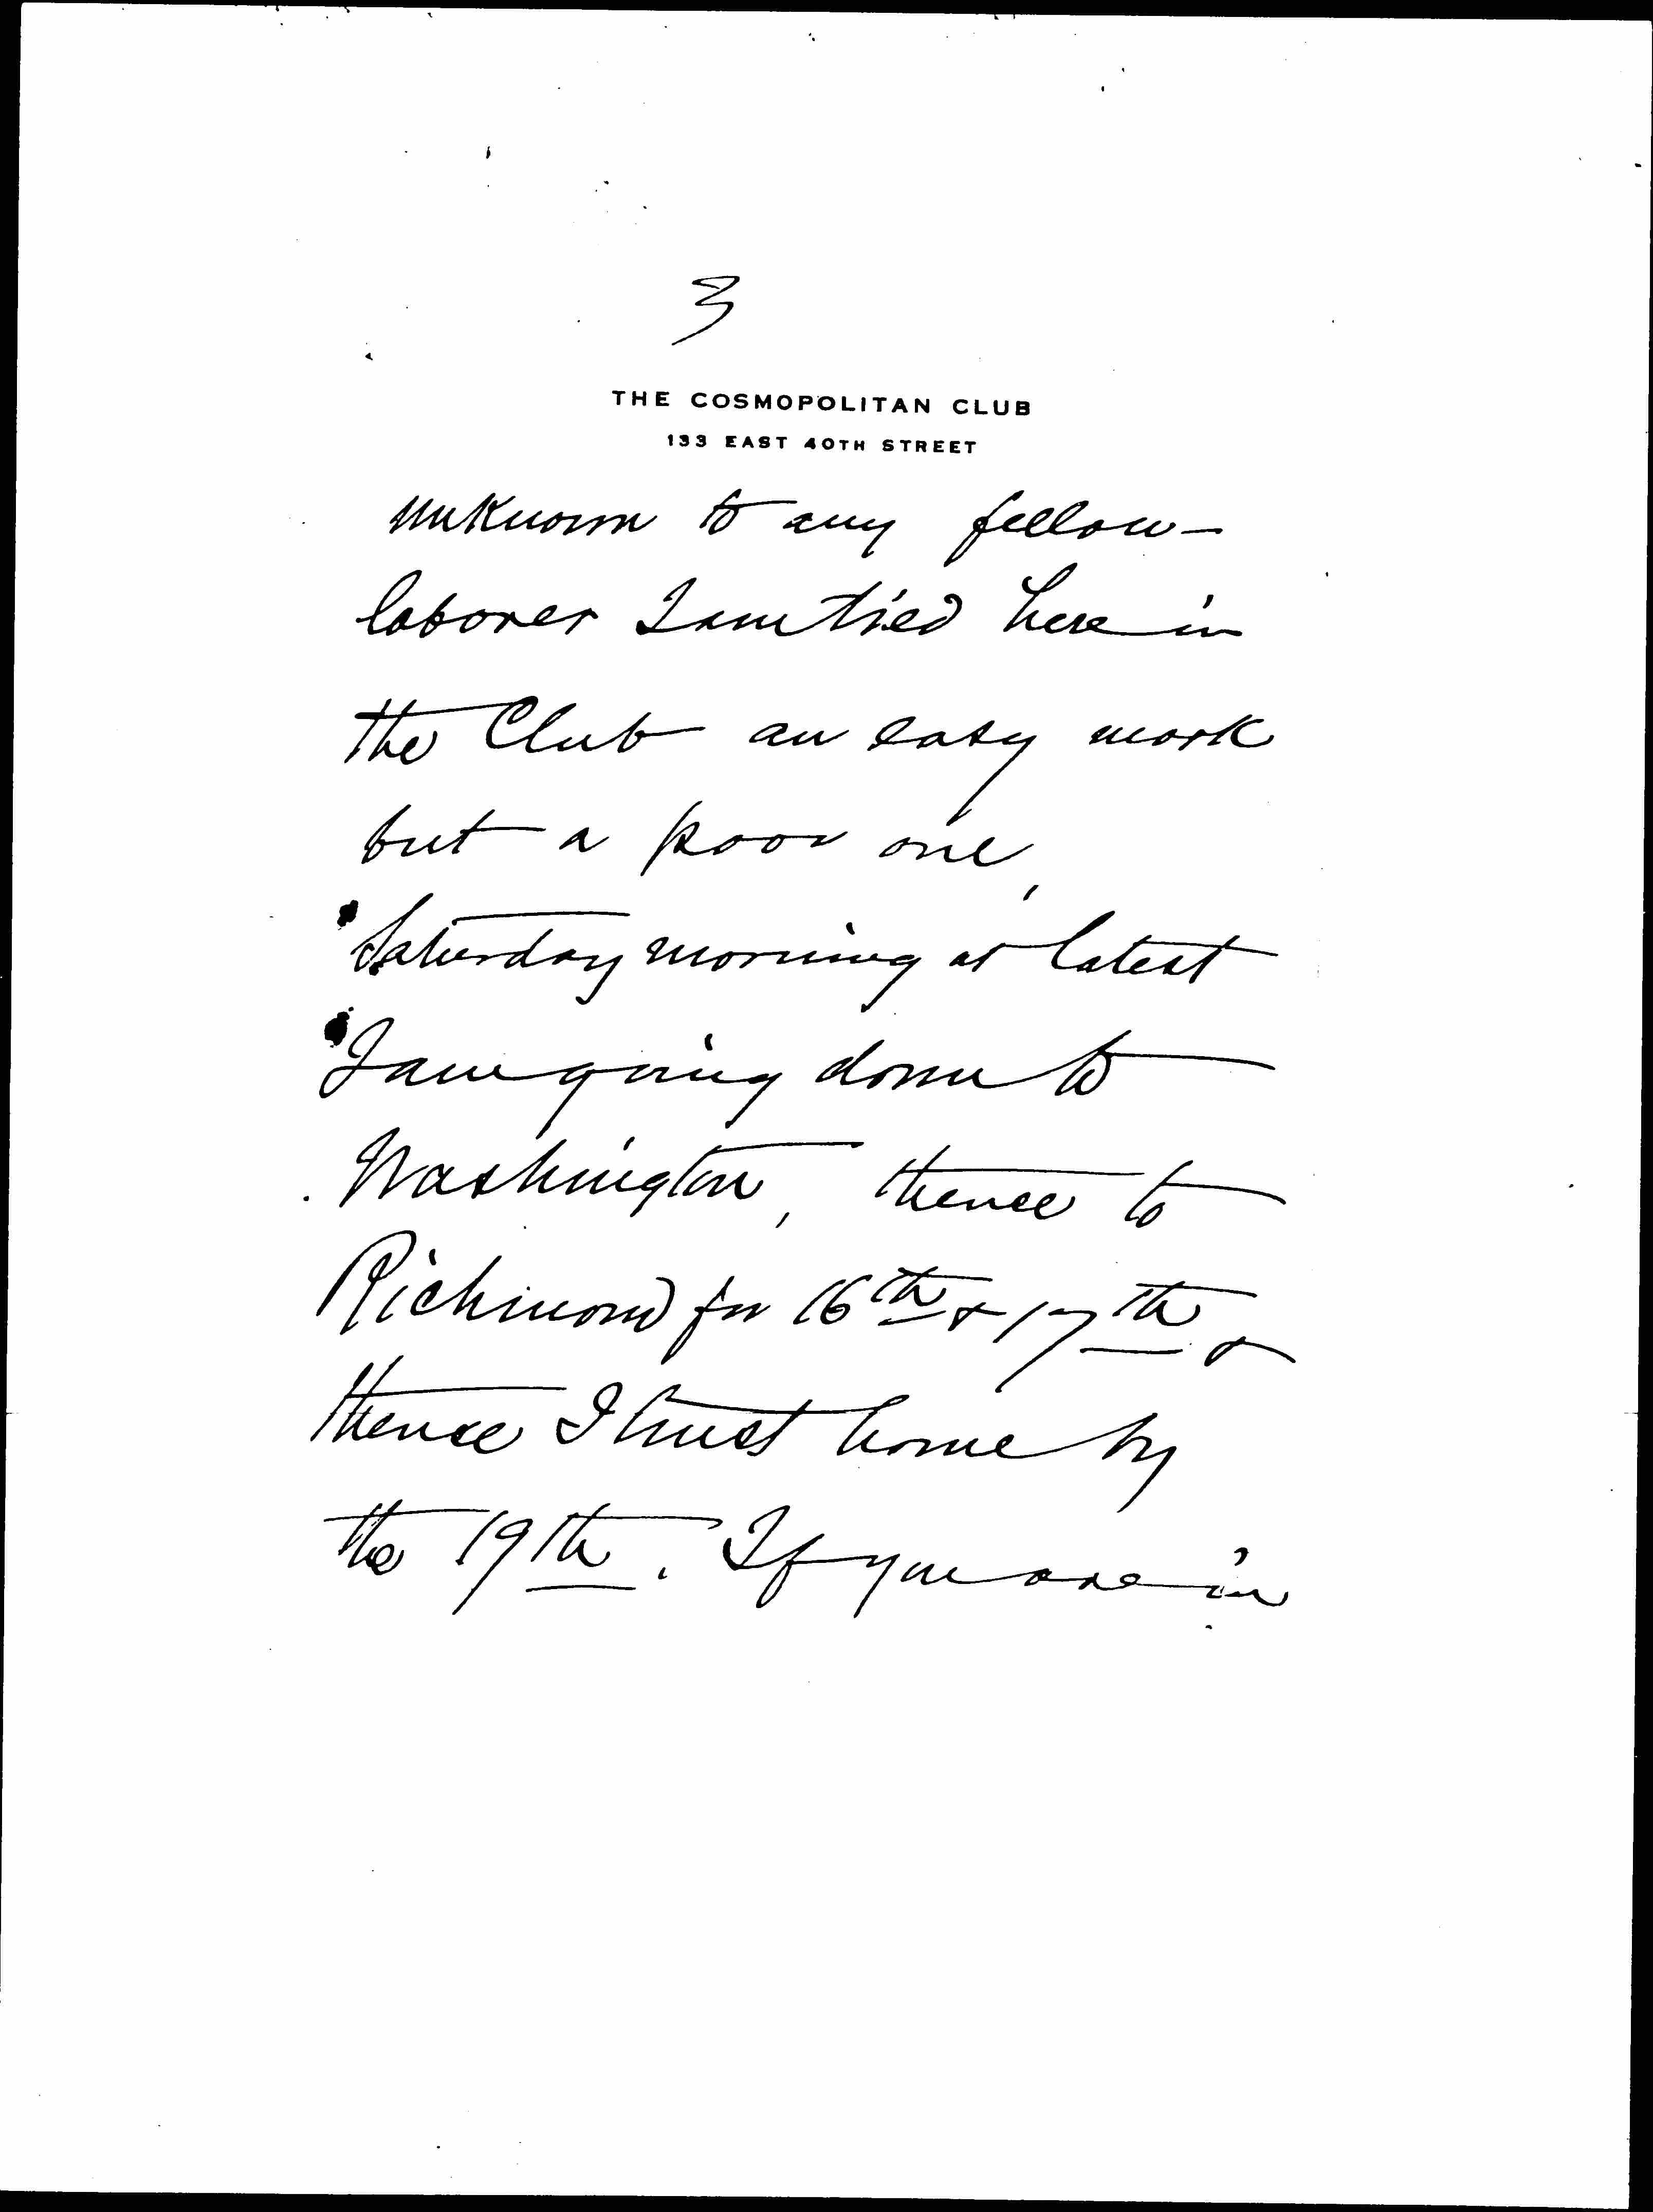 3
THE COSMOPOLITAN CLUB
133 EAST 40TH STREET
unknown to any fellow-
laborer I am tied here in
the Club an easy mark
but a poor one,
Saturday morning at latest
I am going down to
Washington, thence to
Richmond for 16th & 17th &
thence I trust home by
the 19th. If you are in